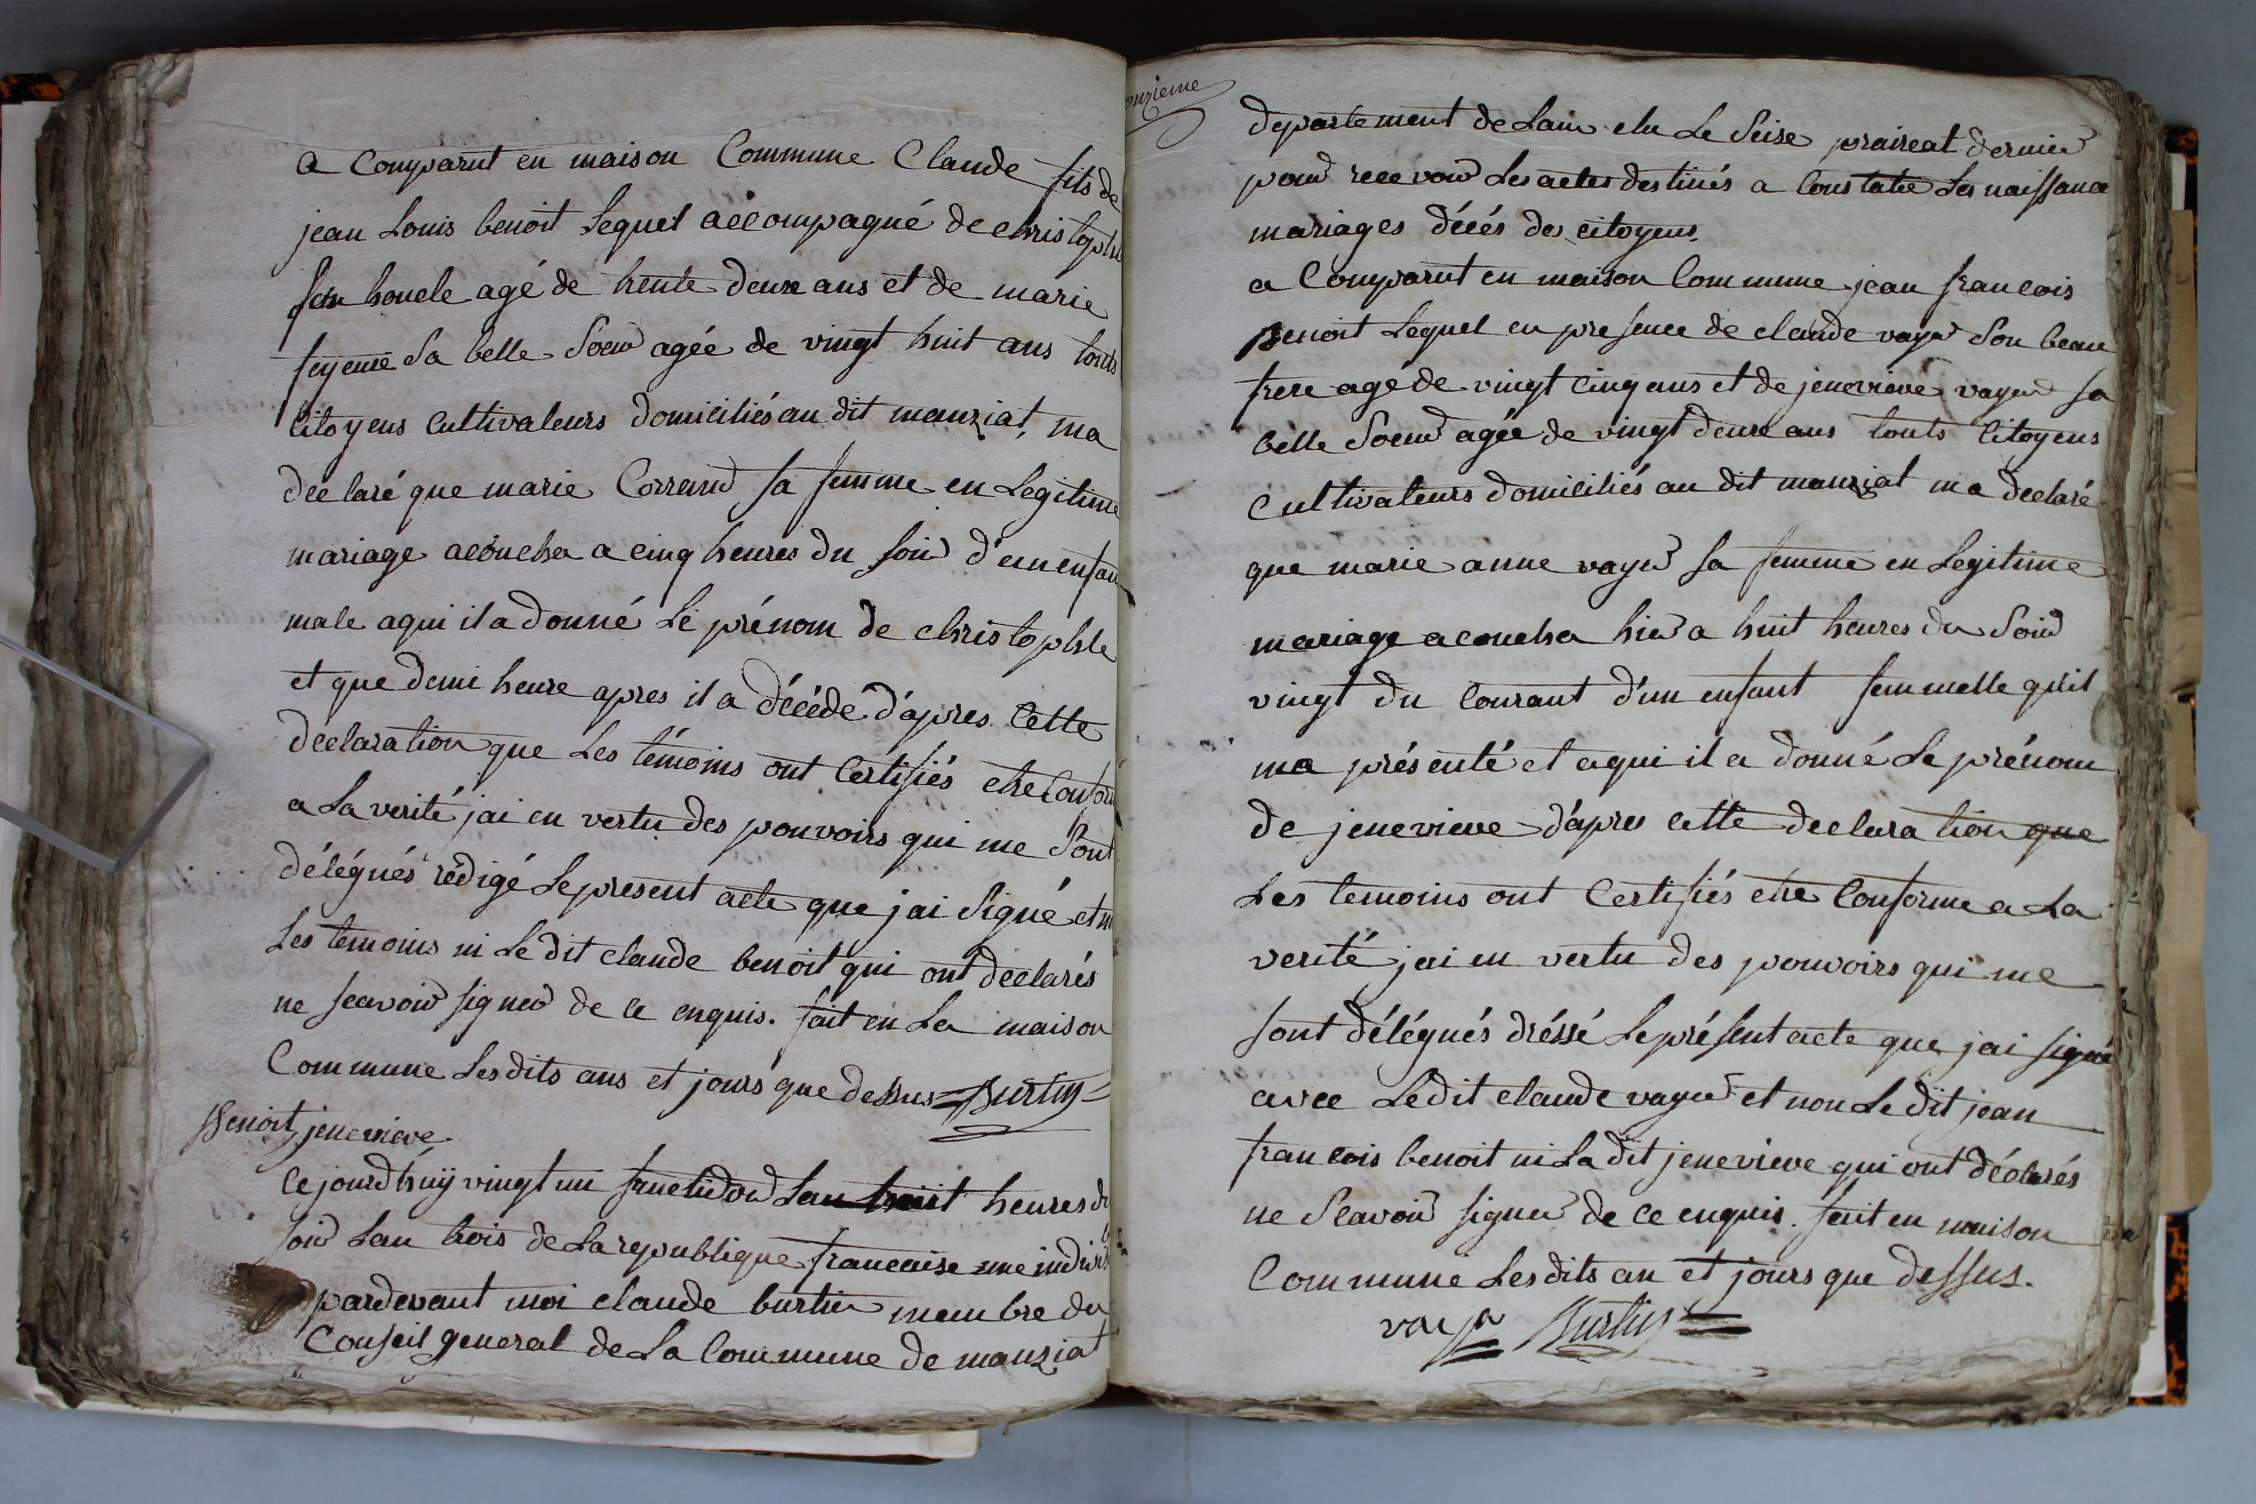 a Comparut en maison Commune Claude fils de
jean Louis benoit Lequel accompagné de christophe
son honcle agé de trente deux ans et de marie
feyeme Sa belle Soeur agée de vingt huit ans touts
Citoyens cultivateurs domiciliés au dit manziat, ma
declaré que marie Corrand sa femme en Legitime
mariage acoucha a cinq heures du soir d'un enfan
male aqui il a donné Le prénom de christophle
et que demi heure apres il a décédé d'apres cette
declaration que Les témoins ont Certifiés etre Conform
a La verité jai en vertu des pouvoirs qui me Sont
délégués rédigé Le present acte que jai Signé et n
Les temoins ni Le dit claude benoit qui ont declarés
ne scavoir signer de ce enquis. fait en La maison
Commune Lesdits ans et jours que dessus Burtin
Benoit jenevieve
Ce jourdhuÿ vingt un fructidor Lan huit heures du
soir Lan trois de La republique francaise une indivis
pardevant moi claude burtin membre du
Conseil general de La Commune de manziat
onzieme
departement de Lain elu Le Seise praireat dernier
pour recevoir Les actes destinés a Constater Les naissance
mariages décés des citoyens.
a Comparut en maison Commune jean francois
Benoit Lequel en presence de claude vayer Son beau
frere agé de vingt cinq ans et de jenevieve vayer sa
belle Soeur agée de vingt deux ans touts Citoyens
cultivateurs domiciliés au dit manziat ma declaré
que marie anne vayer sa femme en Legitime
mariage acoucha hier a huit heures du Soir
vingt du Courant d'un enfant femmelle qu'il
ma présenté et aqui il a donné Le prénom
de jenevieve d'apres cette declaration que
Les temoins ont Certifiés etre Conforme a La
verité jai en vertu des pouvoirs qui me
sont délégués dréssé Le présent acte que jai signé
avec Ledit claude vayer et non Le dit jean
francois benoit ni La dit jenevieve qui ont déclarés
ne Scavoir signer de ce enquis. fait en maison
Commune Lesdits an et jours que dessus.
vayer Burtin